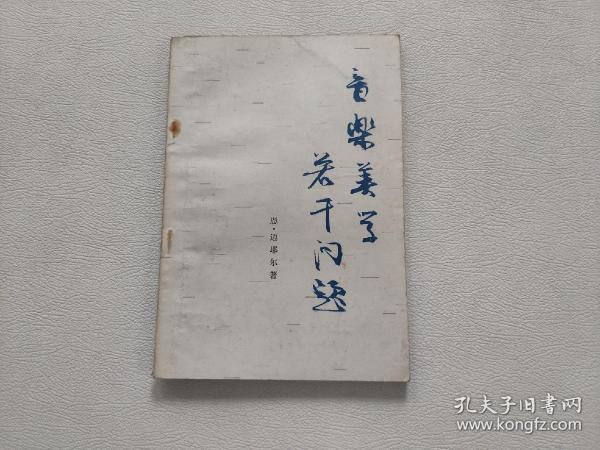 音樂美学
若干问题
恩·迈耶尔著
孔夫子旧书网
www.kongfz.com